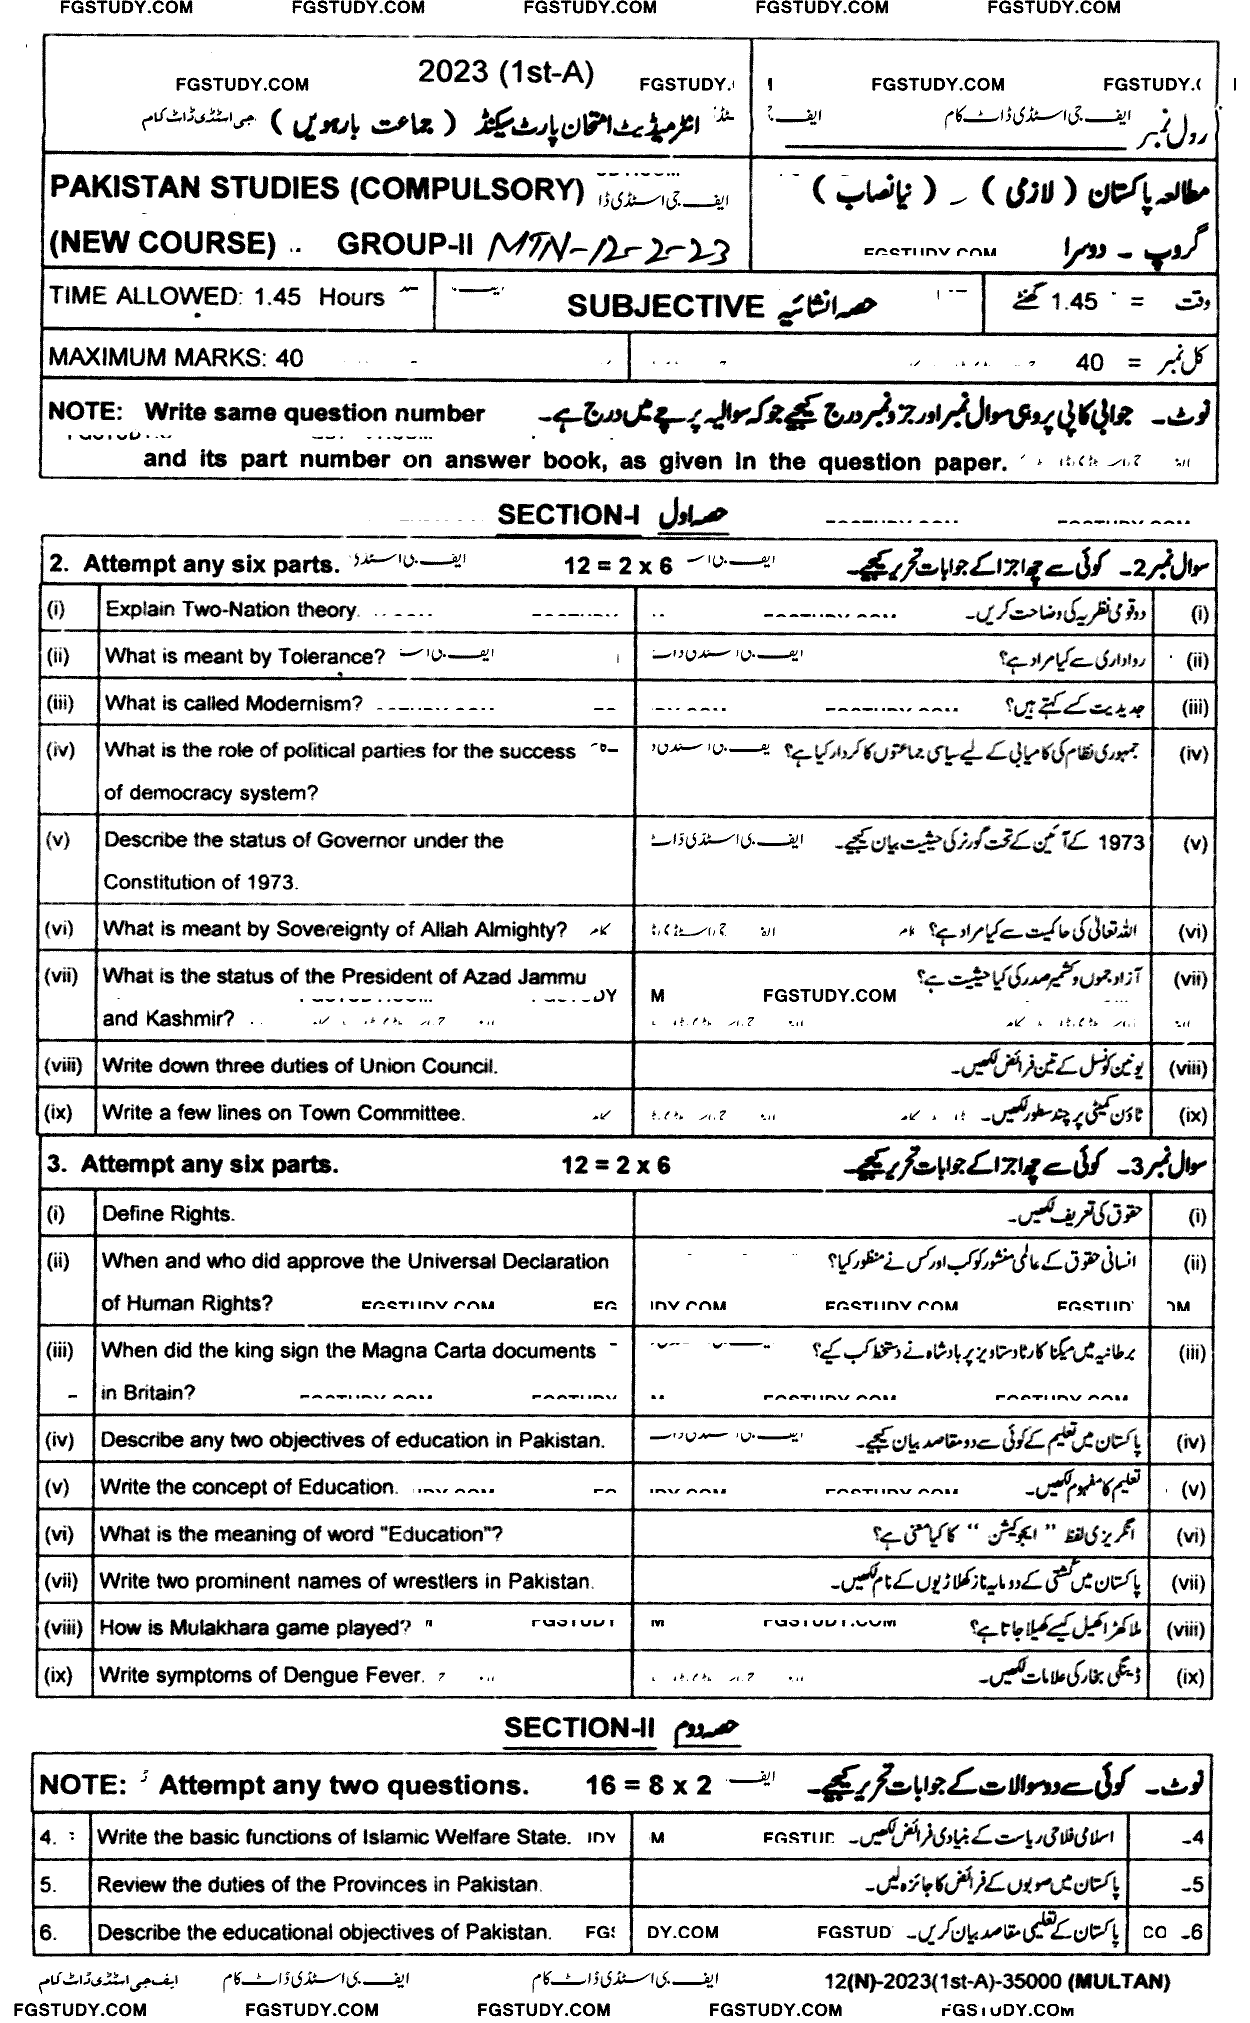 FGSTUDY.COM FGSTUDY.COM FGSTUDY.COM FGSTUDY.COM FGSTUDY.COM
2023 (1st-A)
FGSTUDY.COM FGSTUDY. FGSTUDY.COM FGSTUDY.
انٹرمیڈیٹ امتحان پارٹ سیکنڈ ( جماعت بارہویں )
رول نمبر
PAKISTAN STUDIES (COMPULSORY)
مطالعہ پاکستان ( لازمی ) ۔ ( نیا نصاب )
(NEW COURSE) .. GROUP-II MTN-12-2-23
FGSTUDY.COM
گروپ ۔ دوسرا
TIME ALLOWED: 1.45 Hours
SUBJECTIVE حصہ انشائیہ
وقت = 1.45 گھنٹے
MAXIMUM MARKS: 40
کل نمبر = 40
NOTE: Write same question number
نوٹ۔ جوابی کاپی پر وہی سوال نمبر اور جزو نمبر درج کیجیے جو کہ سوالیہ پرچے میں درج ہے۔
and its part number on answer book, as given in the question paper.
SECTION-I حصہ اول
2. Attempt any six parts. 12 = 2 x 6 سوال نمبر 2۔ کوئی سے چھ اجزا کے جوابات تحریر کیجیے۔
(i) Explain Two-Nation theory. دو قومی نظریہ کی وضاحت کریں۔ (i)
(ii) What is meant by Tolerance? رواداری سے کیا مراد ہے؟ (ii)
(iii) What is called Modernism? جدیدیت کسے کہتے ہیں؟ (iii)
(iv) What is the role of political parties for the success جمہوری نظام کی کامیابی کے لیے سیاسی جماعتوں کا کردار کیا ہے؟ (iv)
of democracy system?
(v) Describe the status of Governor under the 1973 کے آئین کے تحت گورنر کی حیثیت بیان کیجیے۔ (v)
Constitution of 1973.
(vi) What is meant by Sovereignty of Allah Almighty? اللہ تعالٰی کی حاکمیت سے کیا مراد ہے؟ (vi)
(vii) What is the status of the President of Azad Jammu آزاد جموں و کشمیر صدر کی کیا حیثیت ہے؟ (vii)
FGSTUDY.COM
and Kashmir?
(viii) Write down three duties of Union Council. یونین کونسل کے تین فرائض لکھیں۔ (viii)
(ix) Write a few lines on Town Committee. ٹاؤن کمیٹی پر چند سطور لکھیں۔ (ix)
3. Attempt any six parts. 12 = 2 x 6 سوال نمبر 3۔ کوئی سے چھ اجزا کے جوابات تحریر کیجیے۔
(i) Define Rights. حقوق کی تعریف لکھیں۔ (i)
(ii) When and who did approve the Universal Declaration انسانی حقوق کے عالمی منشور کو کب اور کس نے منظور کیا؟ (ii)
of Human Rights? FGSTUDY.COM FGSTUDY.COM
(iii) When did the king sign the Magna Carta documents برطانیہ میں میگنا کارٹا دستاویز پر بادشاہ نے دستخط کب کیے؟ (iii)
in Britain?
(iv) Describe any two objectives of education in Pakistan. پاکستان میں تعلیم کے کوئی سے دو مقاصد بیان کیجیے۔ (iv)
(v) Write the concept of Education. تعلیم کا مفہوم لکھیں۔ (v)
(vi) What is the meaning of word "Education"? انگریزی لفظ " ایجوکیشن " کا کیا معنی ہے؟ (vi)
(vii) Write two prominent names of wrestlers in Pakistan. پاکستان میں کُشتی کے دو مایہ ناز کھلاڑیوں کے نام لکھیں۔ (vii)
(viii) How is Mulakhara game played? ملاکھڑا کھیل کیسے کھیلا جاتا ہے؟ (viii)
(ix) Write symptoms of Dengue Fever. ڈینگی بخار کی علامات لکھیں۔ (ix)
SECTION-II حصہ دوم
NOTE: Attempt any two questions. 16 = 8 x 2 نوٹ۔ کوئی سے دو سوالات کے جوابات تحریر کیجیے۔
4. Write the basic functions of Islamic Welfare State. اسلامی فلاحی ریاست کے بنیادی فرائض لکھیں۔ 4۔
5. Review the duties of the Provinces in Pakistan. پاکستان میں صوبوں کے فرائض کا جائزہ لیں۔ 5۔
6. Describe the educational objectives of Pakistan. پاکستان کے تعلیمی مقاصد بیان کریں۔ 6۔
ایف جی اسٹڈی ڈاٹ کام ایف جی اسٹڈی ڈاٹ کام ایف جی اسٹڈی ڈاٹ کام 12(N)-2023(1st-A)-35000 (MULTAN)
FGSTUDY.COM FGSTUDY.COM FGSTUDY.COM FGSTUDY.COM FGSTUDY.COM